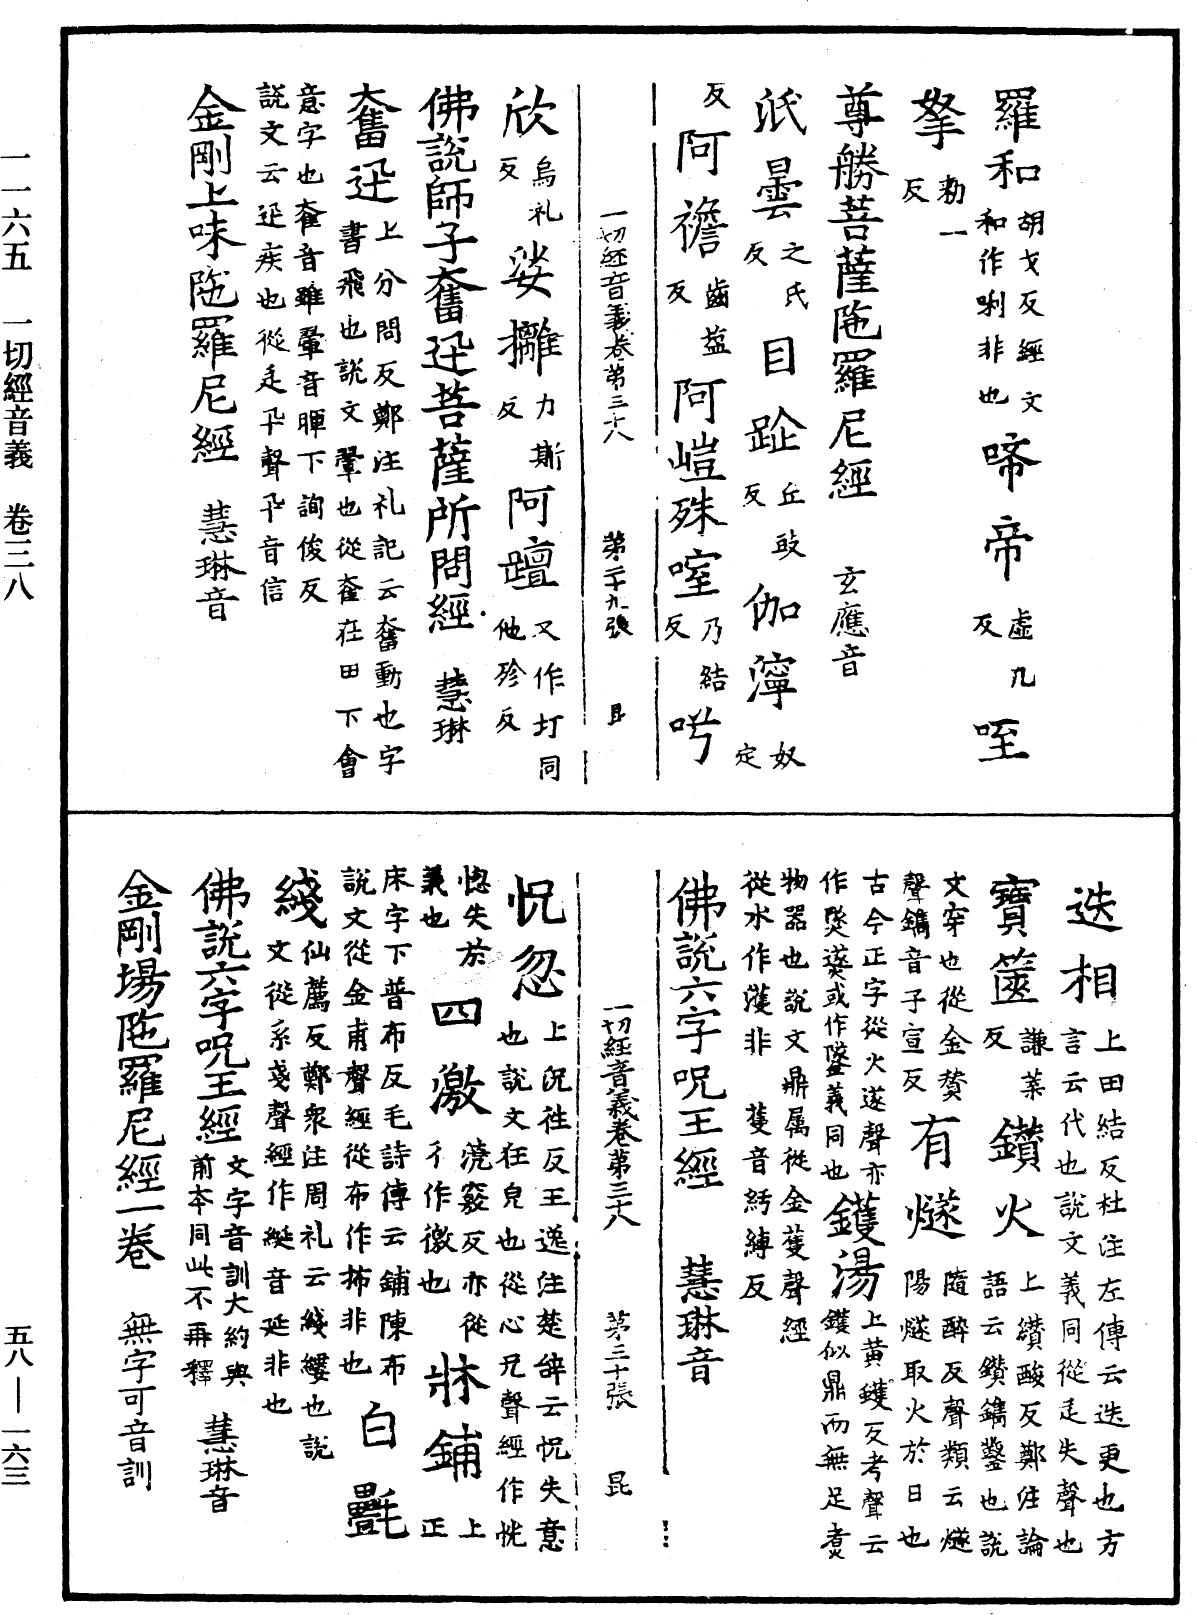 羅和 胡戈反經文和作唎非也 啼帝 虛九反 咥
拏 勑一反
尊勝菩薩陁羅尼經 玄應音
泜曇 之氏反 目跐 丘豉反 伽濘 奴定
反 阿襜 齒益反 阿嵦殊㗌 乃結反 吘
一切經音義卷第三十八 第二十九張 昆
欣 烏礼反 娑攡 力斯反 阿䟢 又作圢同他殄反
佛說師子奮迅菩薩所問經 慧琳
奮迅 上分問反鄭注礼記云奮動也字書飛也說文翬也從奞在田下會
意字也奞音雖翬音暉下詢俊反說文云迅疾也從辵卂聲卂音信
金剛上味陁羅尼經 慧琳音
迭相 上田結反杜注左傳云迭更也方言云代也說文義同從辵失聲也
寶篋 謙葉反 鑽火 上纘酸反鄭注論語云鑽鐫鑿也說
文穿也從金贊聲鐫音子宣反 有燧 隨醉反聲類云燧陽燧取火於日也
古今正字從火遂聲亦作㷭䥙或作鐆義同也 鑊湯 上黃鑊反考聲云鑊似鼎而無足煑
物器也說文鼎属從金蒦聲經從水作濩非 蒦音紆縛反
佛說六字呪王經 慧琳音
一切經音義卷第三十八 第三十張 昆
怳忽 上況往反王逸注楚辝云怳失意也說文狂皃也從心兄聲經作恍
惚失於義也 四激 澆竅反亦從彳作徼也 牀鋪 上正
床字下普布反毛詩傳云鋪陳布說文從金甫聲經從布作抪非也 白㲲
綫 仙薦反鄭衆注周礼云綫縷也說文從系戔聲經作綖音延非也
佛說六字呪王經 文字音訓大約與前本同此不再釋 慧琳音
金剛場陁羅尼經一卷 無字可音訓
一一六五 一切經音義 卷三八
五八—一六三